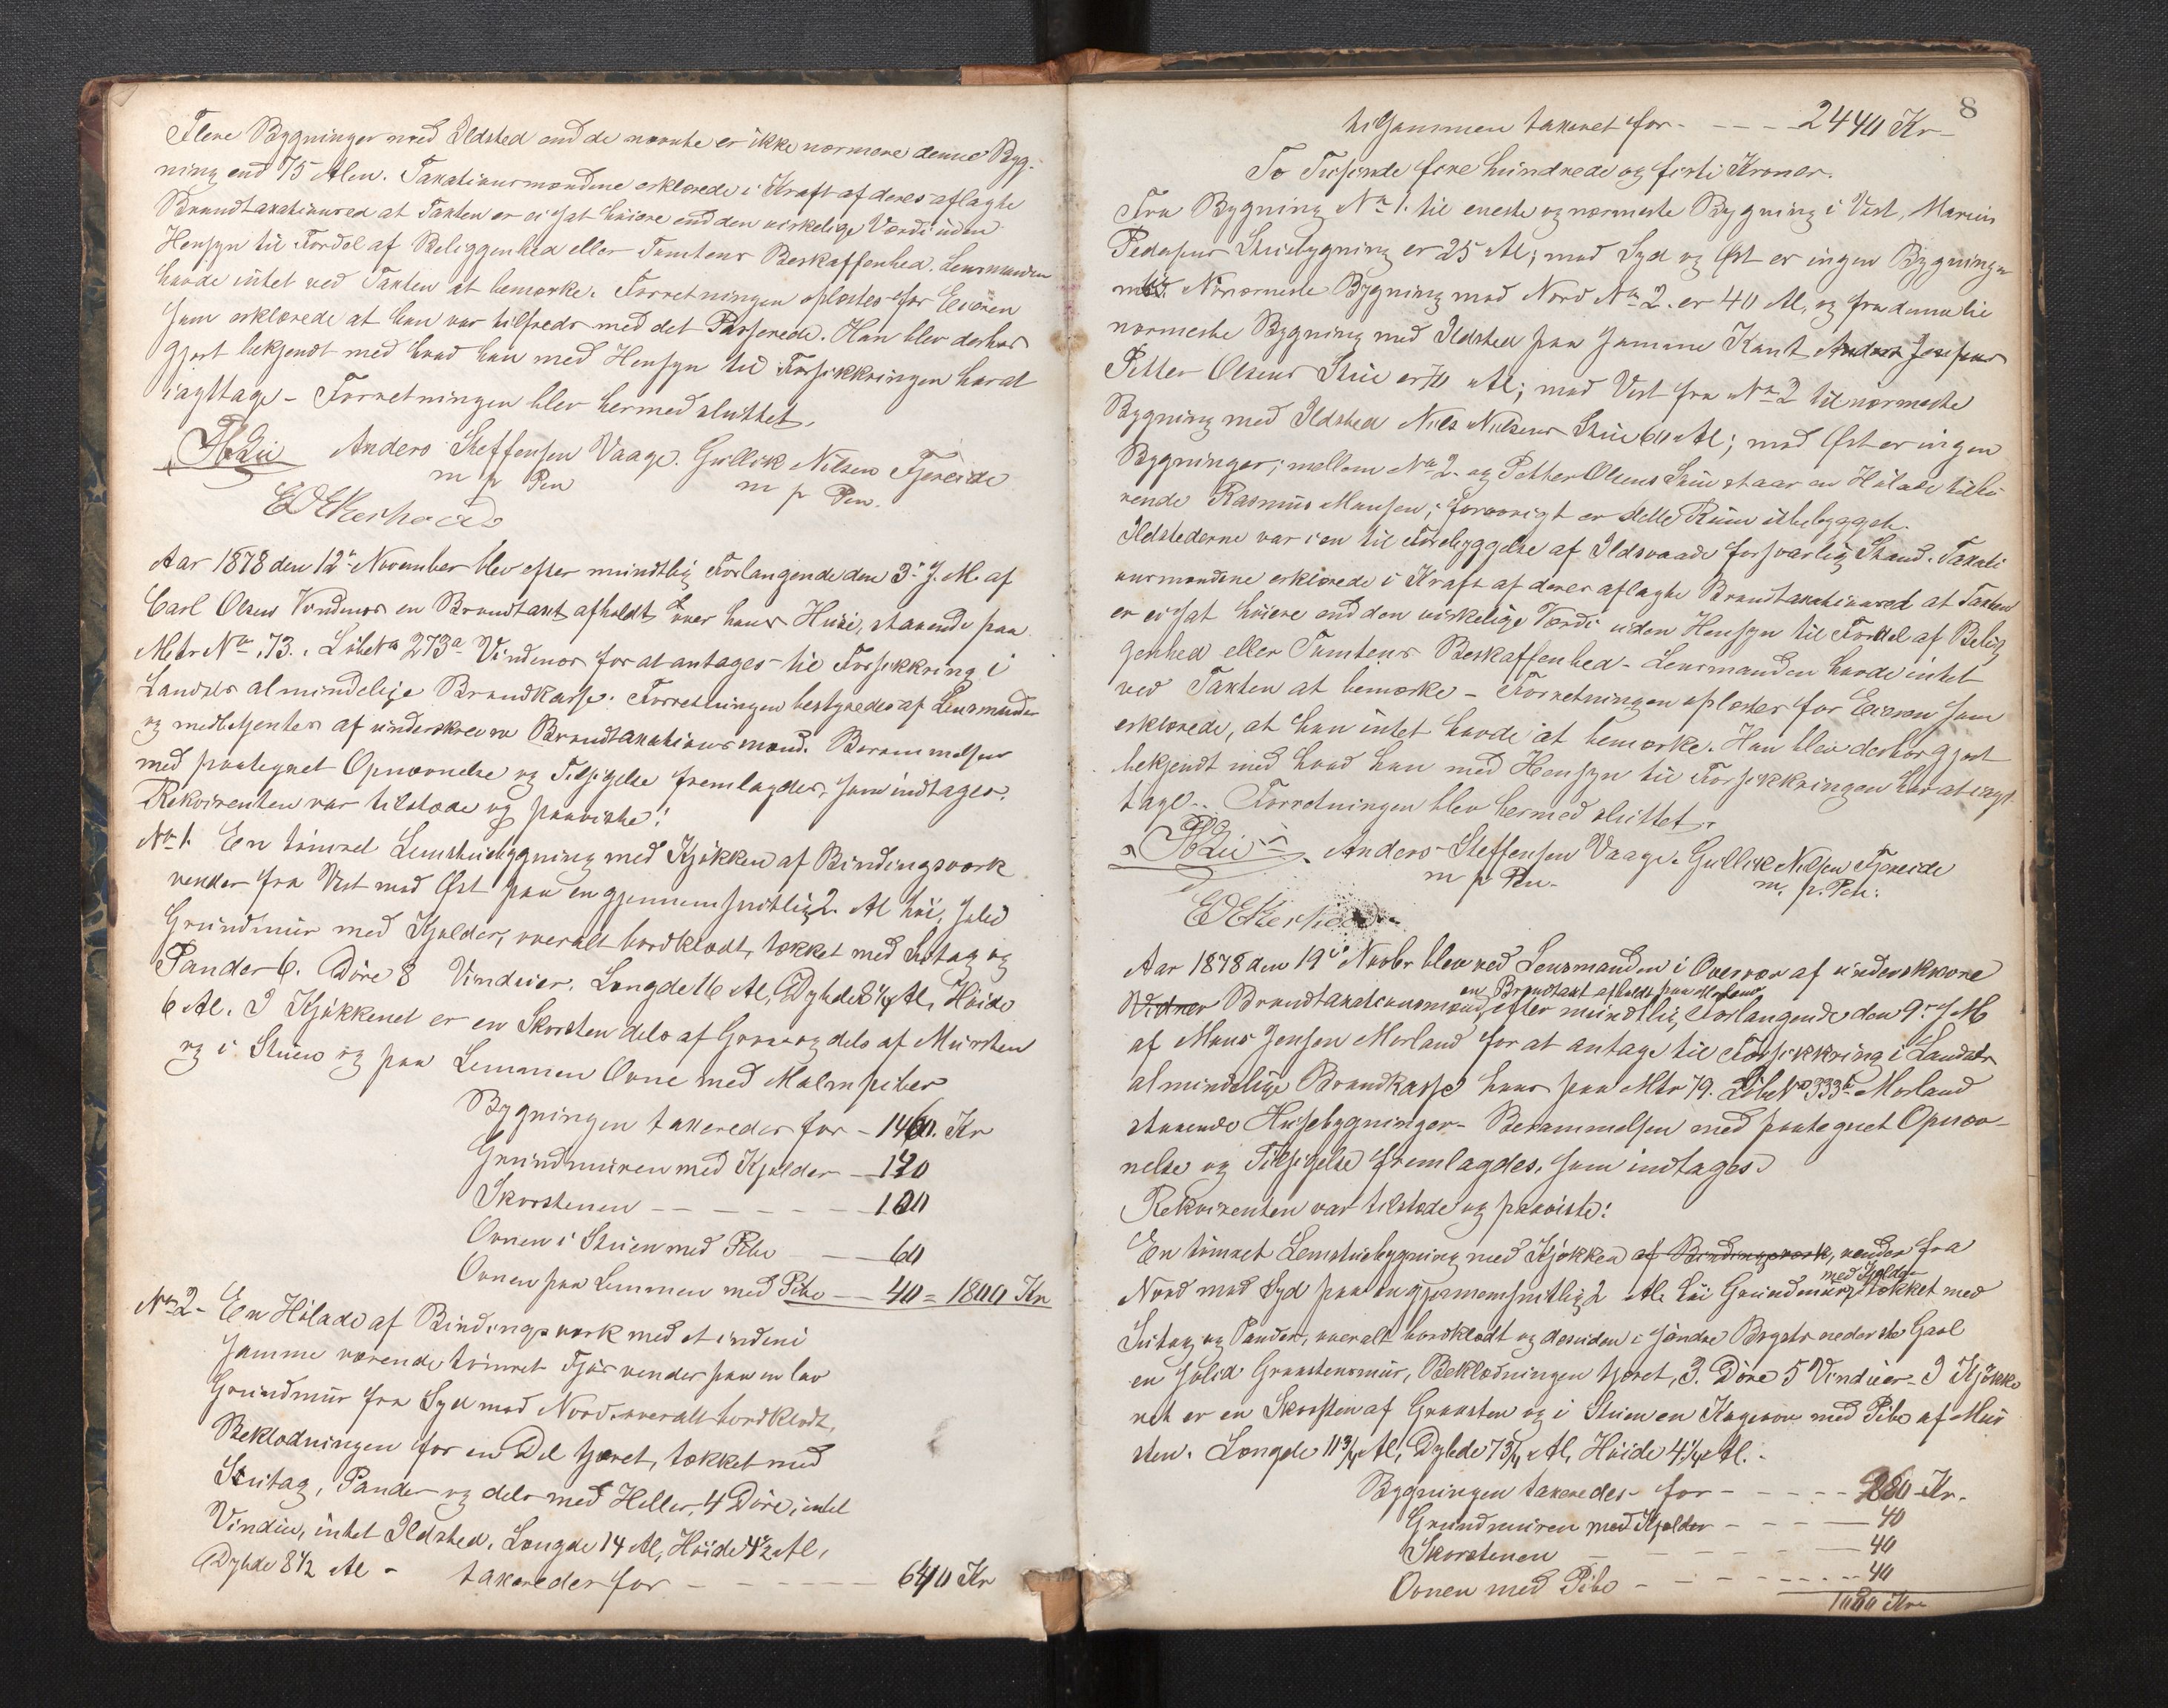 Flere Bygninger med Ildsted end de nævnte er ikke nærmere denne Byg-
ning end 75 Alen. Taxationsmændene erklærede i Kraft af deres aflagte
Brandtaxationsed at Taxten er ei sat høiere end den virkelige Værdi uden
Hensyn til Fordel af Beliggenhed eller Tomtens Beskaffenhed. Lensmanden
havde intet ved Taxten at bemærke. Forretningen oplæstes for Eieren
som erklærede at han var tilfreds med det Passerede. Han blev derhos
gjort bekjendt med hvad han med Hensyn til Forsikkringen har at
iagttage - Forretningen blev hermed sluttet.
Anders Steffensen Vaage. Gullik Nilsen Fjereide
m p Pen m p Pen.
Aar 1878 den 12te November blev efter mundtlig Forlangende den 3die d. M. af
Carl Olsen Vindenes en Brandtaxt afholdt over hans Huse, staaende paa
Mtr No 73. Løbe No 273a Vindenes for at antages til Forsikkring i
Landets almindelige Brandkasse. Forretningen bestyredes af Lensmanden
og medbetjentes af underskrevne Brandtaxationsmænd. Berammelsen
med paategnet Opnævnelse og Tilsigelse fremlagdes, som indtages.
Rekvirenten var tilstede og paaviste:
No 1. En tømret Lemstuebygning med Kjøkken af Bindingsværk
vender fra Vest mod Øst paa en gjennemsnitlig 2 Al høi, solid
Grundmur med Kjelder, overalt bordklædt, tækket med Sutag og
Pander 6. Døre 8 Vinduer. Længde 16 Al, Dybde 8 1/4 Al, Høide
6 Al. I Kjøkkenet er en Skorsten dels af Graa- og dels af Mursten
og i Stuen og paa Lemmen Ovne med Malmpiber
Bygningen taxeredes for - 1460. Kr
Grundmuren med Kjelder - 140
Skorstenen - - - - - - - 100
Ovnen i Stuen med Pibe - - 60
Ovnen paa Lemmen med Pibe - - 40 = 1800 Kr
No 2 - En Hølade af Bindingsværk med et indeni
samme værende tømret Fjøs vender paa en lav
Grundmur fra Syd mod Nord, overalt bordklædt,
Beklædningen for en Del tjæret, tækket med
Sutag, Pander og dels med Heller, 4 Døre, intet
Vindue, intet Ildsted. Længde 14 Al, Høide 4 1/2 Al,
Dybde 8 1/2 Al - taxeredes for - - - - - - 640 Kr
8
tilsammen taxeret for - - - - 2440 Kr -
To Tusinde fire hundrede og firti Kroner.
Fra Bygning No 1. til eneste og nærmeste Bygning i Vest, Marius
Pedersens Stuebygning er 25 Al; mod Syd og Øst er ingen Bygninger
Nærmeste Bygning mod Nord No 2. er 40 Al, og fra denne til
nærmeste Bygning med Ildsted paa samme Kant
Petter Olsens Stue er 70 Al; mod Vest fra No 2 til nærmeste
Bygning med Ildsted Nils Nilsens Stue 60 Al; mod Øst er ingen
Bygninger; mellem No 2. og Petter Olsens Stue staar en Hølade tilhø
rende Rasmus Monsen; forøvrigt er dette Rum ubebygget.
Ildstederne var i en til Forebyggelse af Ildsvaade forsvarlig Stand. Taxati
onsmændene erklærede i Kraft af deres aflagte Brandtaxationsed at Taxten
er ei sat høiere end den virkelige Værdi uden Hensyn til Fordel af Belig
genhed eller Tomtens Beskaffenhed - Lensmanden havde intet
ved Taxten at bemærke - Forretningen oplæstes for Eieren som
erklærede, at han intet havde at bemærke. Han blev derhos gjort
bekjendt med hvad han med Hensyn til Forsikkringen har at iagt-
tage - Forretningen blev hermed sluttet.
Anders Steffensen Vaage. Gullik Nilsen Fjereide
m p Pen - m. p. Pen:
Aar 1878 den 19de Novbr blev ved Lensmanden i Overvær af underskrevne
en Brandtaxt afholdt paa Morland
Vidner Brandtaxationsmænd efter mundtlig Forlangende den 9de d M
af Mons Jensen Morland for at antage til Forsikkring i Landets
almindelige Brandkasse hans paa Mtr 79. Løbe No 333a Morland
staaende Husebygninger - Berammelsen med paategnet Opnæv-
nelse og Tilsigelse fremlagdes, som indtages
Rekvirenten var tilstede og paaviste:
En tømret Lemstuebygning med Kjøkken af Bindingsværk, vender fra
med Kjelder
Nord mod Syd paa en gjennemsnitlig 2 Al. høi Grundmur, tækket med
Sutag og Pander, overalt bordklædt og desuden i søndre Bygets nederste Gavl
en solid Graastensmur, Beklædningen tjæret, 3. Døre 5 Vinduer - I Kjøkke
net er en Skorsten af Graasten og i Stuen en Kageovn med Pibe af Mur
sten. Længde 11 3/4 Al, Dybde 7 3/4 Al, Høide 4 1/4 Al. -
Bygningen taxeredes for - - - - - 960 Kr.
Grundmuren med Kjelder - - - - 40
Skorstenen - - - - - 40
Ovnen med Pibe - - - - - - 40
1080 Kr